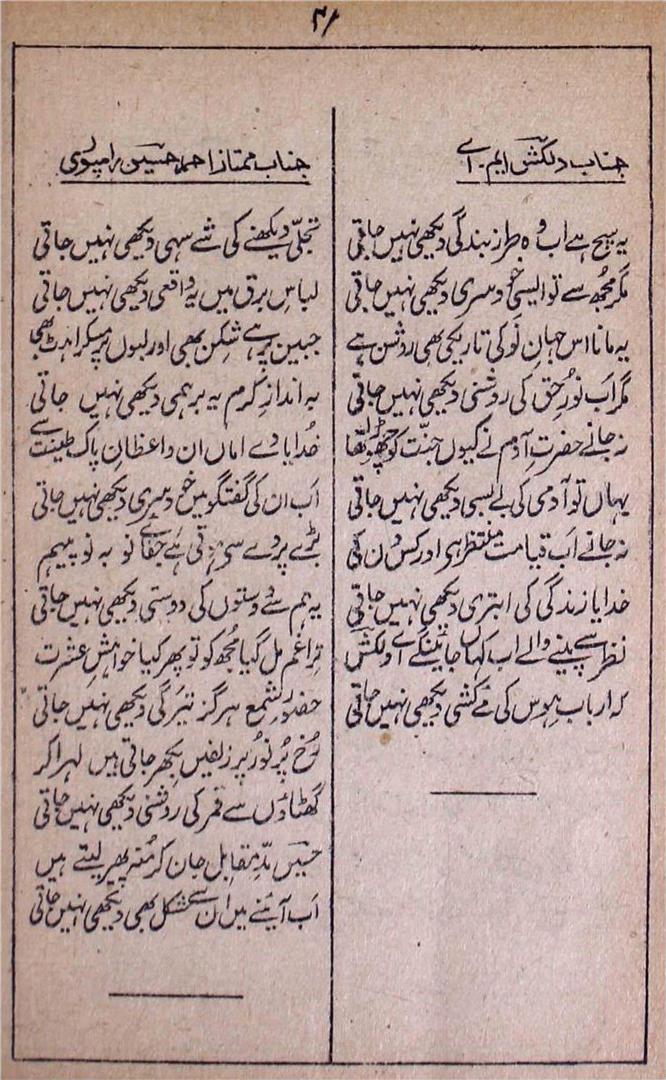 ۴۱
جناب دلکش ایم۔ اے
یہ سچ ہے اب وہ طرز بندگی دیکھی نہیں جاتی
مگر مجھ سے تو ایسی خود سری دیکھی نہیں جاتی
یہ مانا اس جہانِ نَو کی تاریکی بھی روشن ہے
مگر اَب نورِ حق کی روشنی دیکھی نہیں جاتی
نہ جانے حضرتِ آدم نے کیوں جنّت کو چھوڑا تھا
یہاں تو آدمی کی بے بسی دیکھی نہیں جاتی
نہ جانے اَب قیامت منتظر ہی اور کس دن کی
خدایا زندگی کی ابتری دیکھی نہیں جاتی
نظر سے پینے والے اب کہاں جائینگے اے دلکش
کہ اربابِ ہوس کی مے کشی دیکھی نہیں جاتی
جناب ممتاز احمد حسین رامپوری
تجلّی دیکھنے کی شے سہی دیکھی نہیں جاتی
لباسِ برق میں یہ واقعی دیکھی نہیں جاتی
جبین پر ہے شکن بھی اور لبوں پر مسکراہٹ بھی
بہ اندازِ کرم یہ برہمی دیکھی نہیں جاتی
خُدایا دے اماں ان واعظانِ پاک طینت سے
اَب ان کی گفتگو میں خود سری دیکھی نہیں جاتی
بڑے پردے سی ہوتی ہے جفائے نو بہ نو پیہم
یہ ہم سے دوستوں کی دوستی دیکھی نہیں جاتی
تِرا غم مل گیا مُجھ کو تو پھر کیا خواہشِ عشرت
حضورِ شمع ہرگز تیرگی دیکھی نہیں جاتی
رُخِ پُر نُور پر زلفیں بکھر جاتی ہیں لہرا کر
گھٹاؤں سے قمر کی روشنی دیکھی نہیں جاتی
حسیں مدِّ مقابل جان کر مُنہ پھیر لیتے ہیں
اَب آئینے میں ان سے شکل بھی دیکھی نہیں جاتی